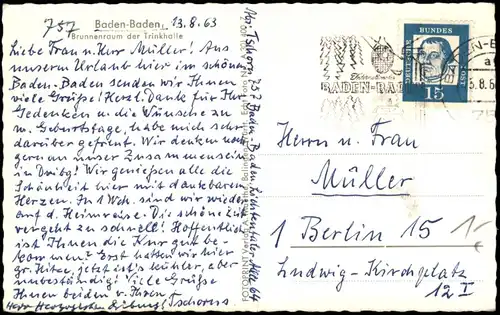 757 Baden-Baden, 13.8.63
Brunnenraum der Trinkhalle
Liebe Frau u. Herr Müller! Aus
unserem Urlaub hier im schönen
Baden-Baden senden wir Ihnen
viele Grüße! Herzl. Dank für Ihr
Gedenken u. die Wünsche zu
m. Geburtstage, habe mich sehr
darüber gefreut. Wir denken noch
gern an unser Zusammensein
in Driby! Wir genießen alle die
Schönheit hier mit dankbarem
Herzen. In 1 Wch. sind wir wieder
auf d. Heimreise. Die schöne Zeit
vergeht zu schnell! Hoffentlich
ist Ihnen die Kur gut be-
kommen? Erst hatten wir hier
gr. Hitze, jetzt ist's kühler, aber
unbeständig! Viele Grüße
Ihnen beiden v. Ihren
Tschorns.
Tschorn, 757 Baden-Baden, Lichtentaler Allee 64
BADEN-BADEN
DEUTSCHE
BUNDES
15
Herrn u. Frau
Müller
1 Berlin 15
Ludwig-Kirchplatz
12 I